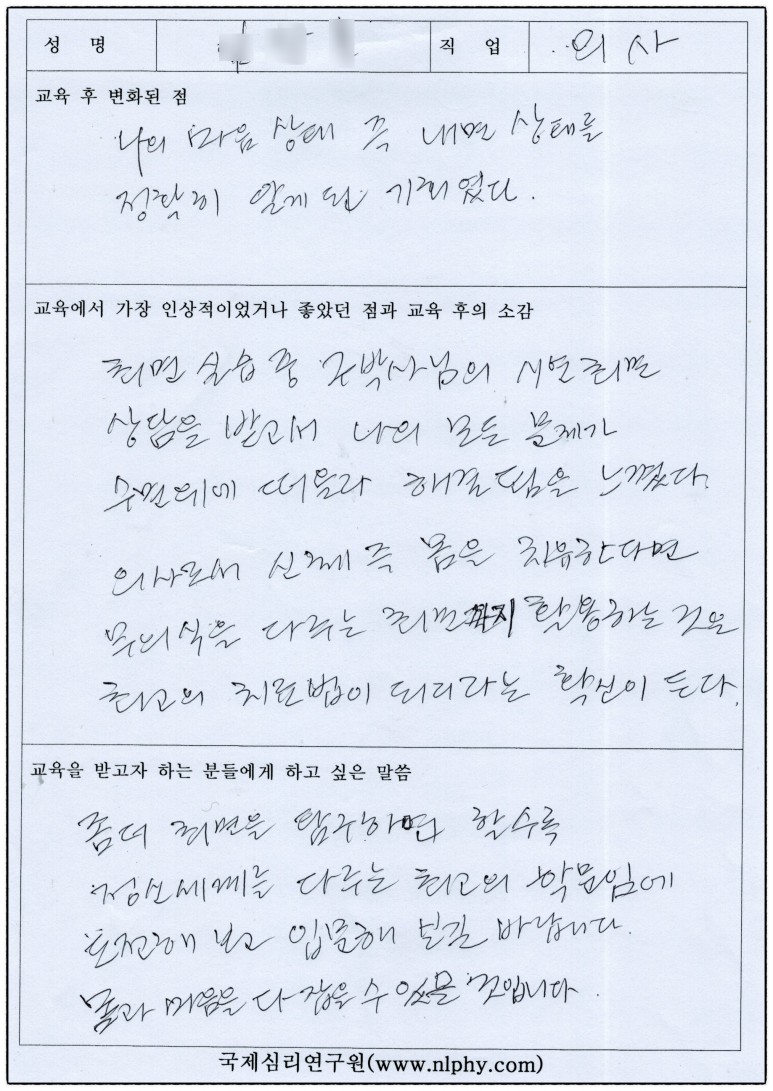 성 명
직 업 의사
교육 후 변화된 점
나의 마음 상태 즉 내면 상태를
정확히 알게 된 기회였다.
교육에서 가장 인상적이었거나 좋았던 점과 교육 후의 소감
최면 실습 중 구박사님의 시연 최면
상담을 받고서 나의 모든 문제가
수면위에 떠올라 해결됨을 느꼈다.
의사로서 신체 즉 몸을 치유한다면
무의식을 다루는 최면까지 활용하는 것은
최고의 치료법이 되리라는 확신이 든다.
교육을 받고자 하는 분들에게 하고 싶은 말씀
좀더 최면을 탐구하면 할수록
정신세계를 다루는 최고의 학문임에
도전해 보고 입문해 보길 바랍니다.
몸과 마음을 다 잡을 수 있을 것입니다.
국제심리연구원(www.nlphy.com)